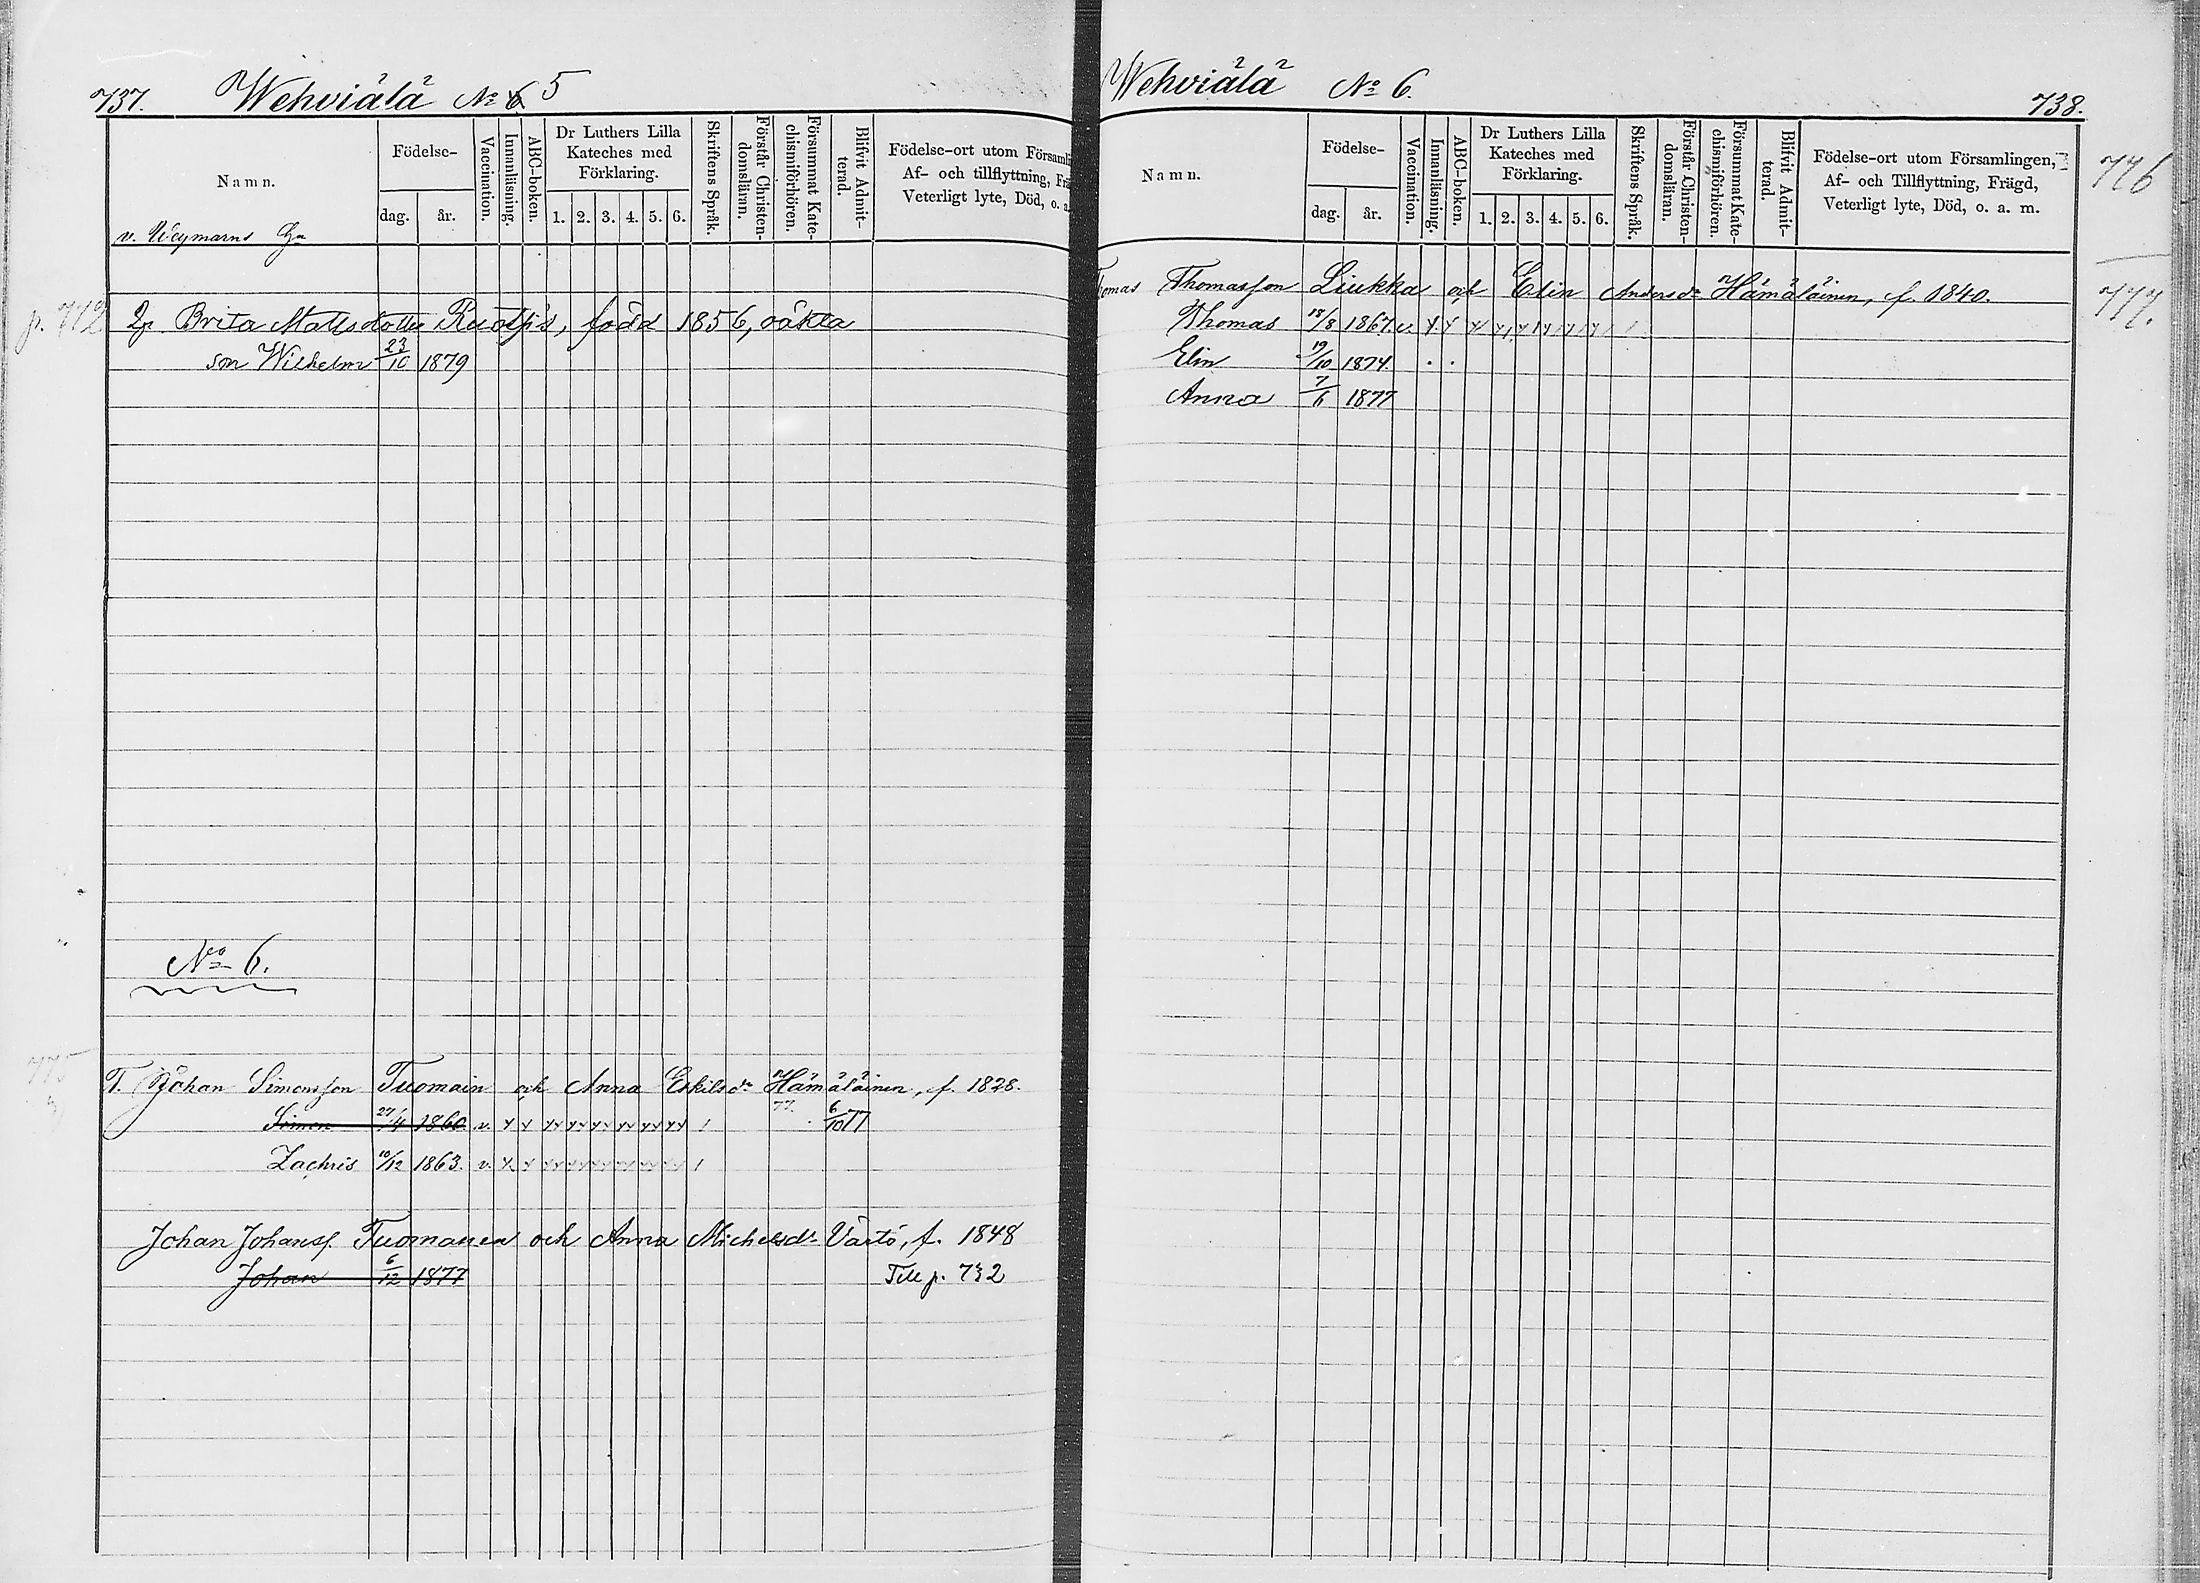 737. Wehviälä No 6 5
Namn.
Födelse-
dag.
år.
Vaccination.
Innanläsning.
ABC-boken.
Dr Luthers Lilla
Kateches med
Förklaring.
1. 2. 3. 4. 5. 6.
Skriftens Språk.
Förstår Christen-
domsläran.
Försummat Kate-
chismiförhören.
Blifvit Admit-
terad.
Födelse-ort utom Församli
Af- och tillflyttning, Frä
Veterligt lyte, Död, o. a.
v. Weymarns
p. 772
Brita Mattsdotter Ruotsi's, född 1856, oäkta
son Wilhelm 23/10 1879
No 6.
775
T. Johan Simonsson Tuomain och Anna Eskilsdr Hämäläinen, f. 1828.
77.
Simon 27/4 1860. v. 6/10 77
Zachris 10/12 1863. v.
Johan Johanss. Tuomanen och Anna Michelsdr Värtö, f. 1848
Johan 6/12 1877 Till p. 732
Wehviälä No 6.
738.
Namn.
Födelse-
dag.
år.
Vaccination.
Innanläsning.
ABC-boken.
Dr Luthers Lilla
Kateches med
Förklaring.
1. 2. 3. 4. 5. 6.
Skriftens Språk.
Förstår Christen-
domsläran.
Försummat Kate-
chismiförhören.
Blifvit Admit-
terad.
Födelse-ort utom Församlingen,
Af- och Tillflyttning, Frägd,
Veterligt lyte, Död, o. a. m.
776
777.
omas Thomasson Liukka och Elin Andersdr Hämäläinen, f. 1840.
Thomas 18/8 1867. v.
Elin 19/10 1874.
Anna 7/6 1877